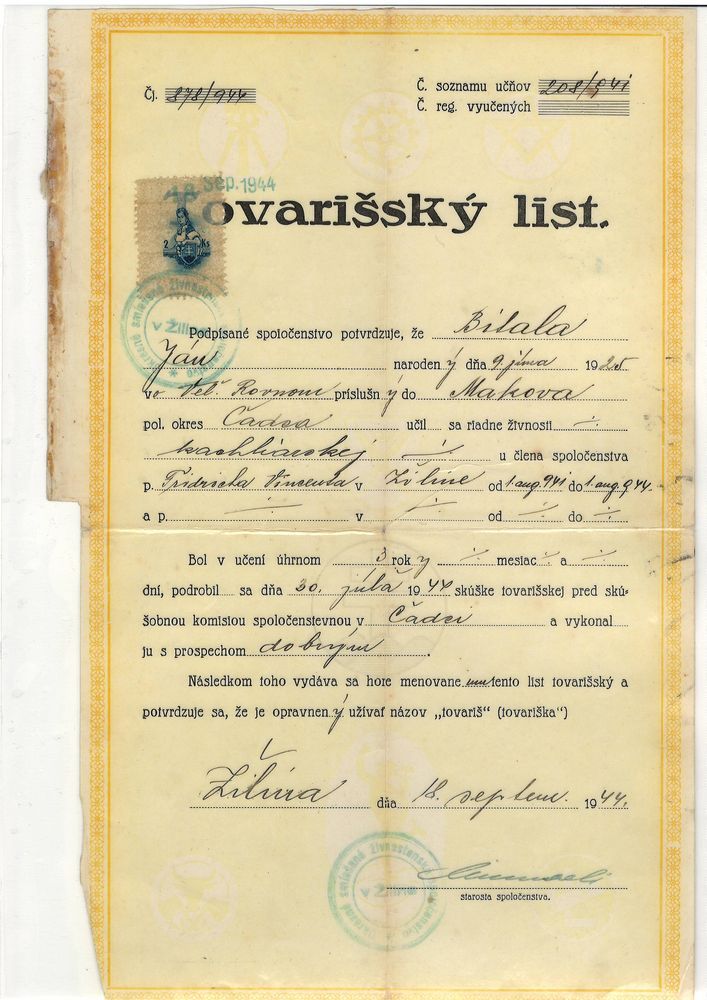 Čj. 878/944
Č. soznamu učňov 208/941
Č. reg. vyučených
18 Sep. 1944
Tovarišský list.
2 Ks
v Žiline
Podpísané spoločenstvo potvrdzuje, že Bitala
Ján naroden ý dňa 9 júna 1925
vo Veľ. Rovnom príslušn ý do Makova
pol. okres Čadca učil sa riadne živnosti
kachliarskej u člena spoločenstva
p. Fridricha Vincenta v Žiline od 1. aug. 941 do 1. aug. 944.
a p. v od do
Bol v učení úhrnom 3 rok y mesiac a
dní, podrobil sa dňa 30. júla 1944 skúške tovarišskej pred skú-
šobnou komisiou spoločenstevnou v Čadci a vykonal
ju s prospechom dobrým.
Následkom toho vydáva sa hore menovane mu tento list tovarišský a
potvrdzuje sa, že je opravnen ý užívať názov „tovariš" (tovariška")
Žilina dňa 18. septem. 1944.
starosta spoločenstva.
v Žiline